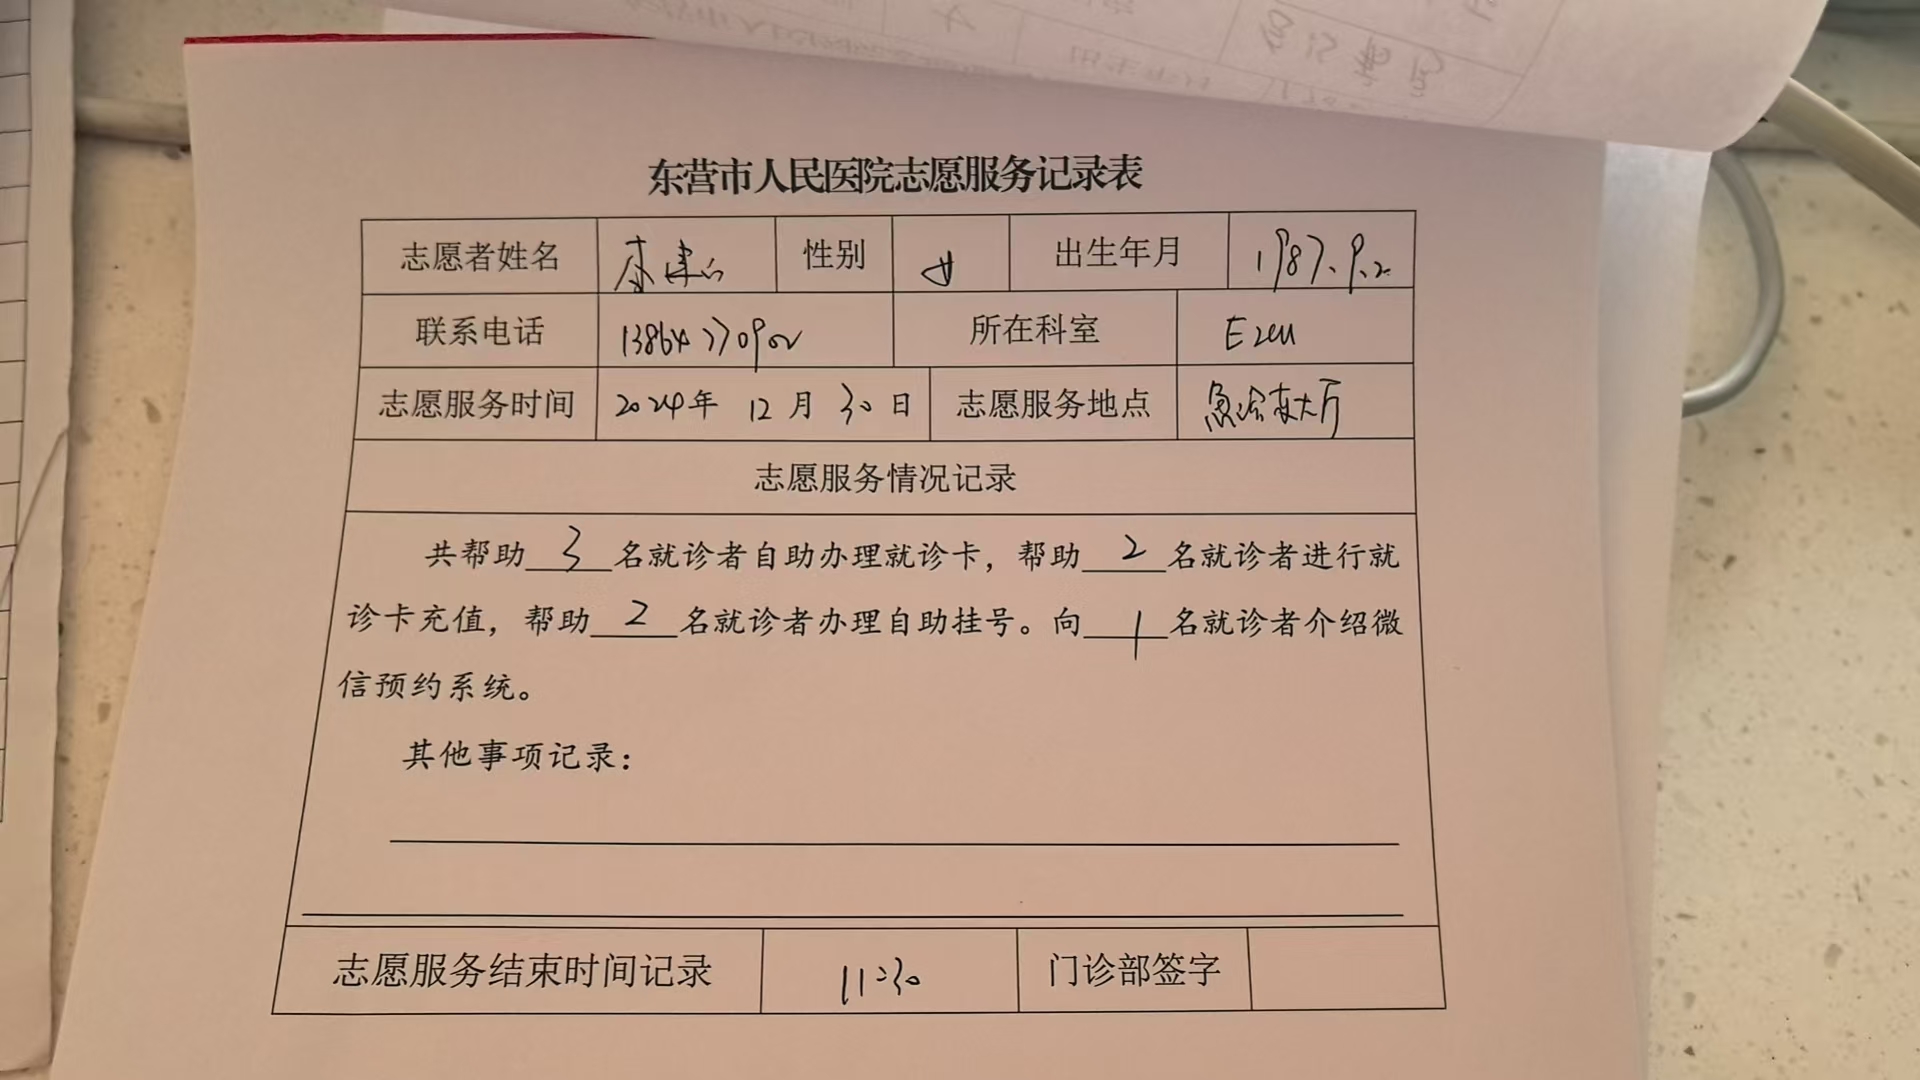 东营市人民医院志愿服务记录表
志愿者姓名 李建 性别 女 出生年月 1987.9.2
联系电话 13864770902 所在科室 EICU
志愿服务时间 2024年 12月 30日 志愿服务地点 急诊大厅
志愿服务情况记录
共帮助 3 名就诊者自助办理就诊卡，帮助 2 名就诊者进行就
诊卡充值，帮助 2 名就诊者办理自助挂号。向 1 名就诊者介绍微
信预约系统。
其他事项记录：
志愿服务结束时间记录 11:30 门诊部签字